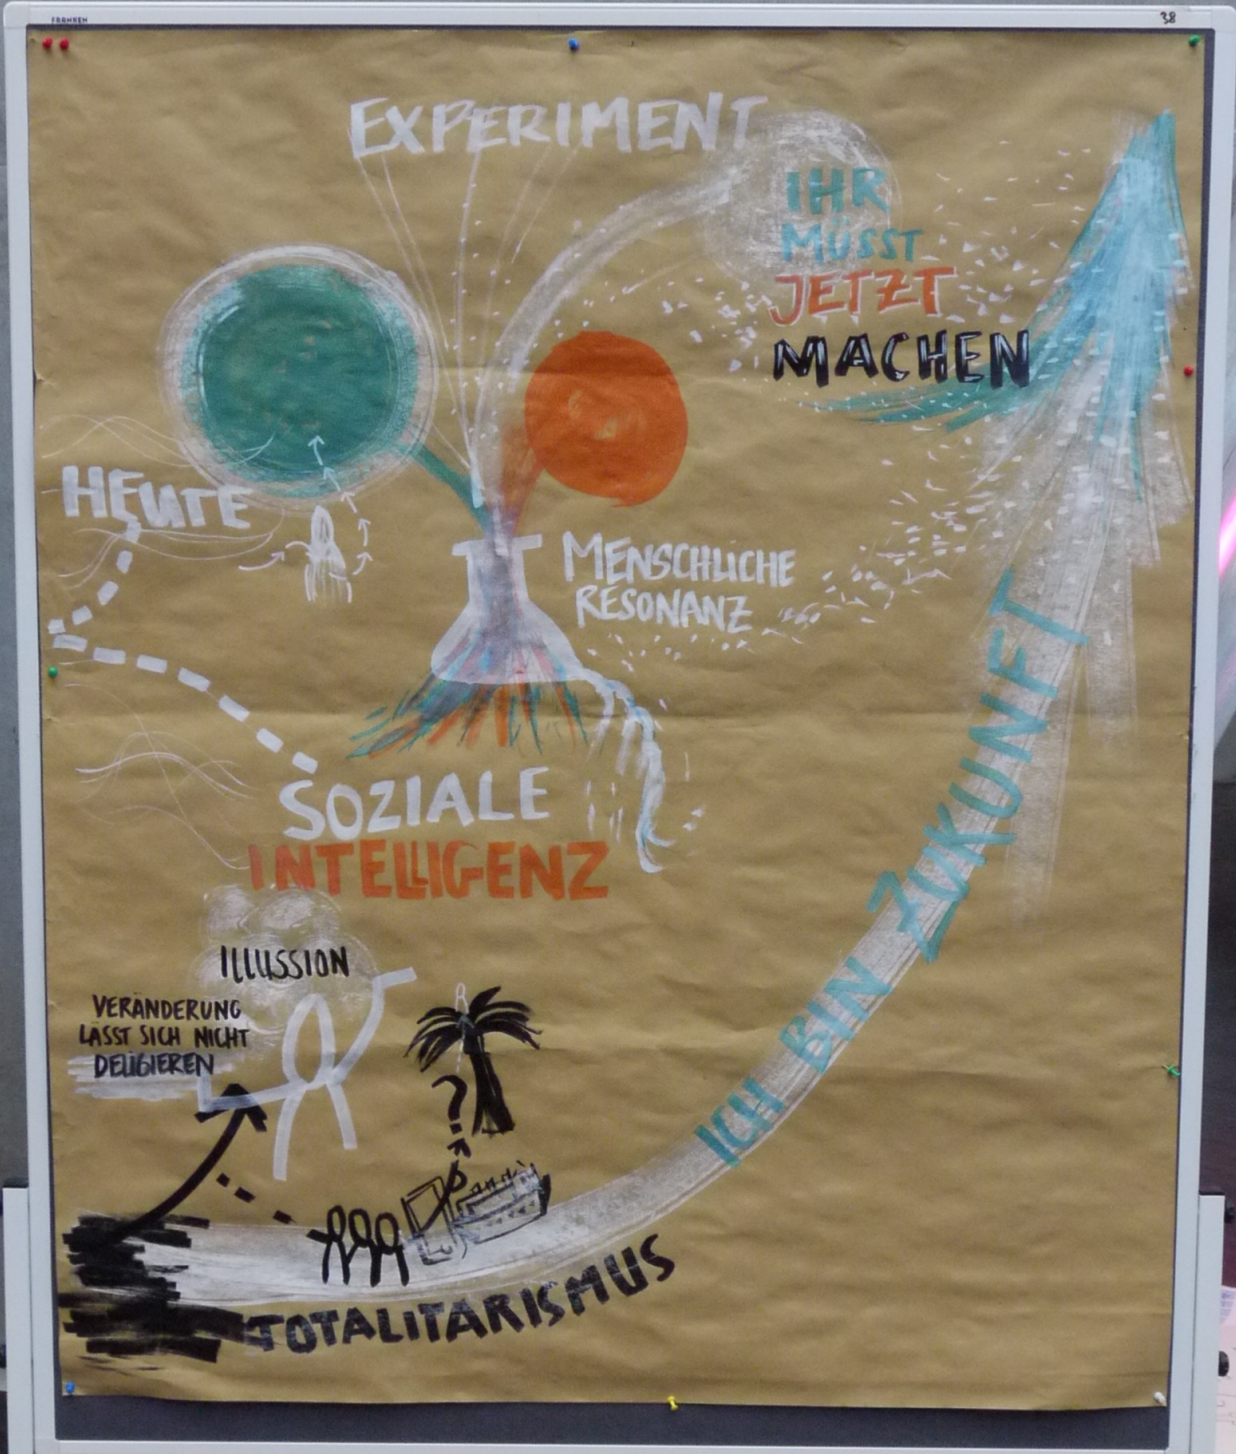 FRANKEN
38
EXPERIMENT
IHR
MÜSST
JETZT
MACHEN
HEUTE
MENSCHLICHE
RESONANZ
SOZIALE
INTELLIGENZ
ILLUSSION
VERÄNDERUNG
LÄSST SICH NICHT
DELIGIEREN
?
ICH BIN ZUKUNFT
TOTALITARISMUS